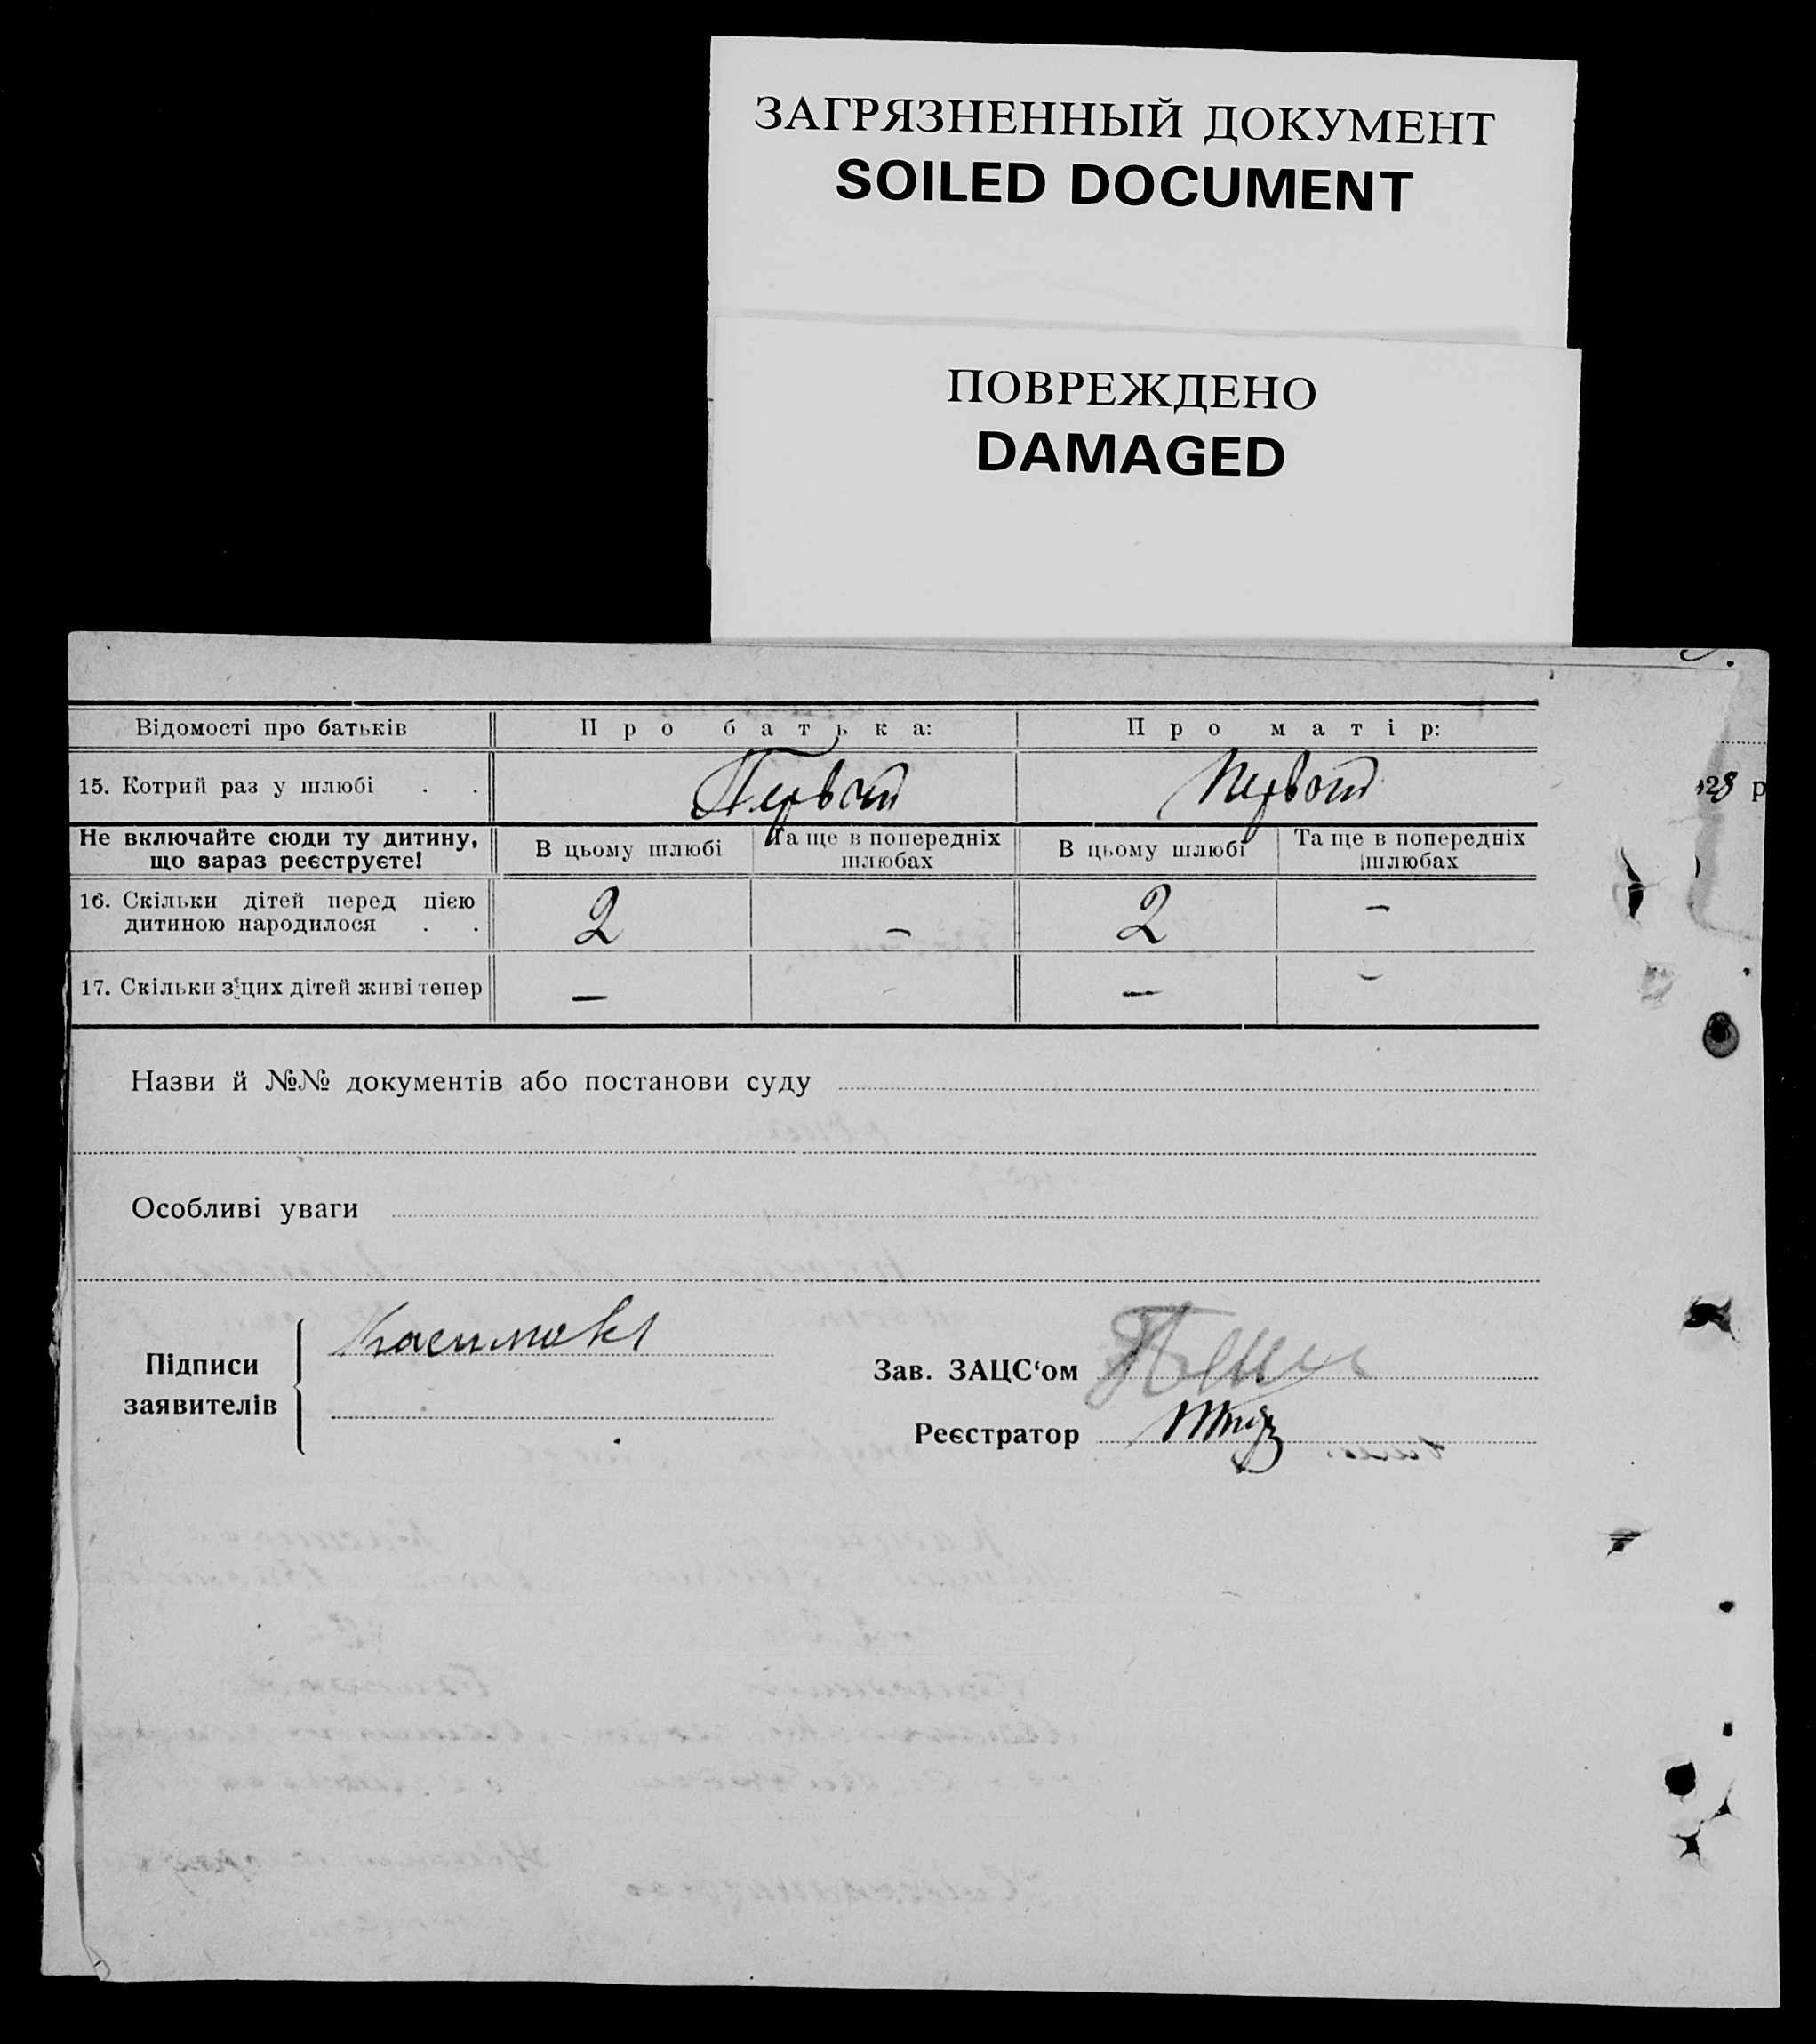 ЗАГРЯЗНЕННЫЙ ДОКУМЕНТ
SOILED DOCUMENT
ПОВРЕЖДЕНО
DAMAGED
Відомості про батьків Про батька: Про матір:
15. Котрий раз у шлюбі . . Первый Первый
28 р
Не включайте сюди ту дитину, що зараз реєструєте! В цьому шлюбі Та ще в попередніх шлюбах В цьому шлюбі Та ще в попередніх шлюбах
16. Скільки дітей перед цією дитиною народилося . . 2 – 2 –
17. Скільки з цих дітей живі тепер – – – –
Назви й №№ документів або постанови суду
Особливі уваги
Підписи заявителів
Зав. ЗАЦС‘ом
Реєстратор